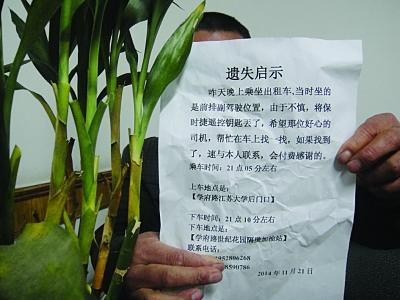 遗失启示
昨天晚上乘坐出租车、当时坐的
是前排副驾驶位置，由于不慎，将保
时捷遥控钥匙丢了，希望那位好心的
司机，帮忙在车上找一找，如果找到
了，速与本人联系，会付费感谢的。
乘车时间：21点05分左右
上车地点是：
【学府路江苏大学后门口】
下车时间：21点10分左右
下车地点是：
【学府路世纪花园隔壁加油站】
联系电话：
2014年11月21日